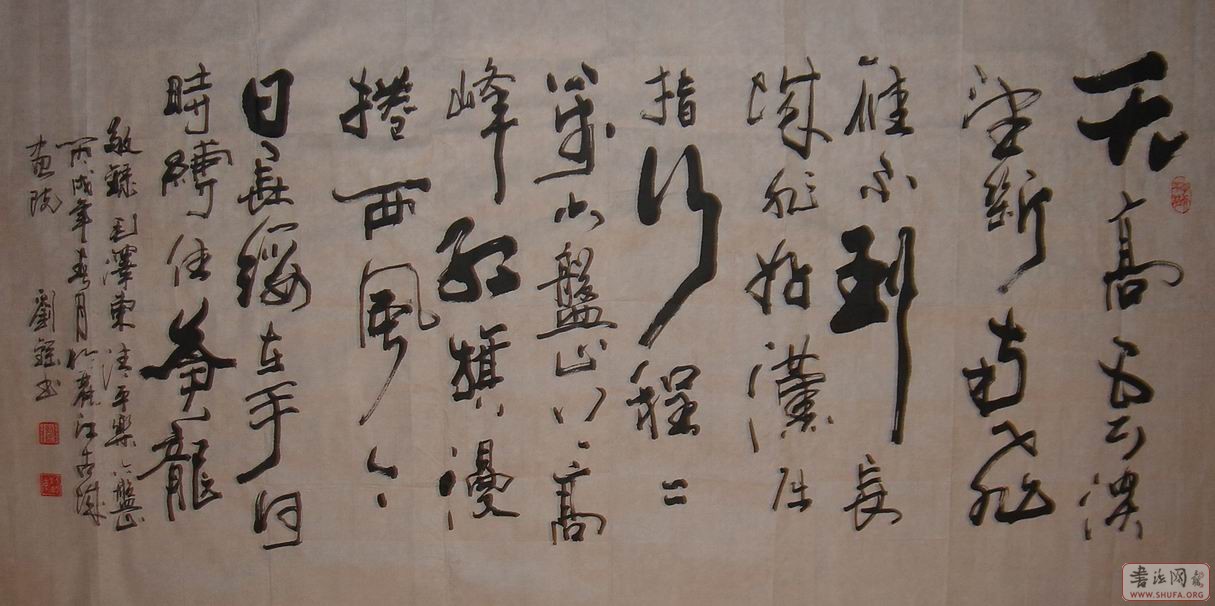 天高雲淡
望斷南飛
雁不到長
城非好漢屈
指行程二
萬六盤山上高
峰紅旗漫
捲西風今
日長纓在手何
時縛住蒼龍
敬錄毛澤東清平樂六盤山
丙戌年春月於麗江古城
畫院 劉 書
書法网
WWW.SHUFA.ORG